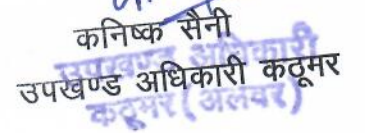 कनिष्क सैनी
उपखण्ड अधिकारी कठूमर
उपखण्ड अधिकारी
कठूमर (अलवर)